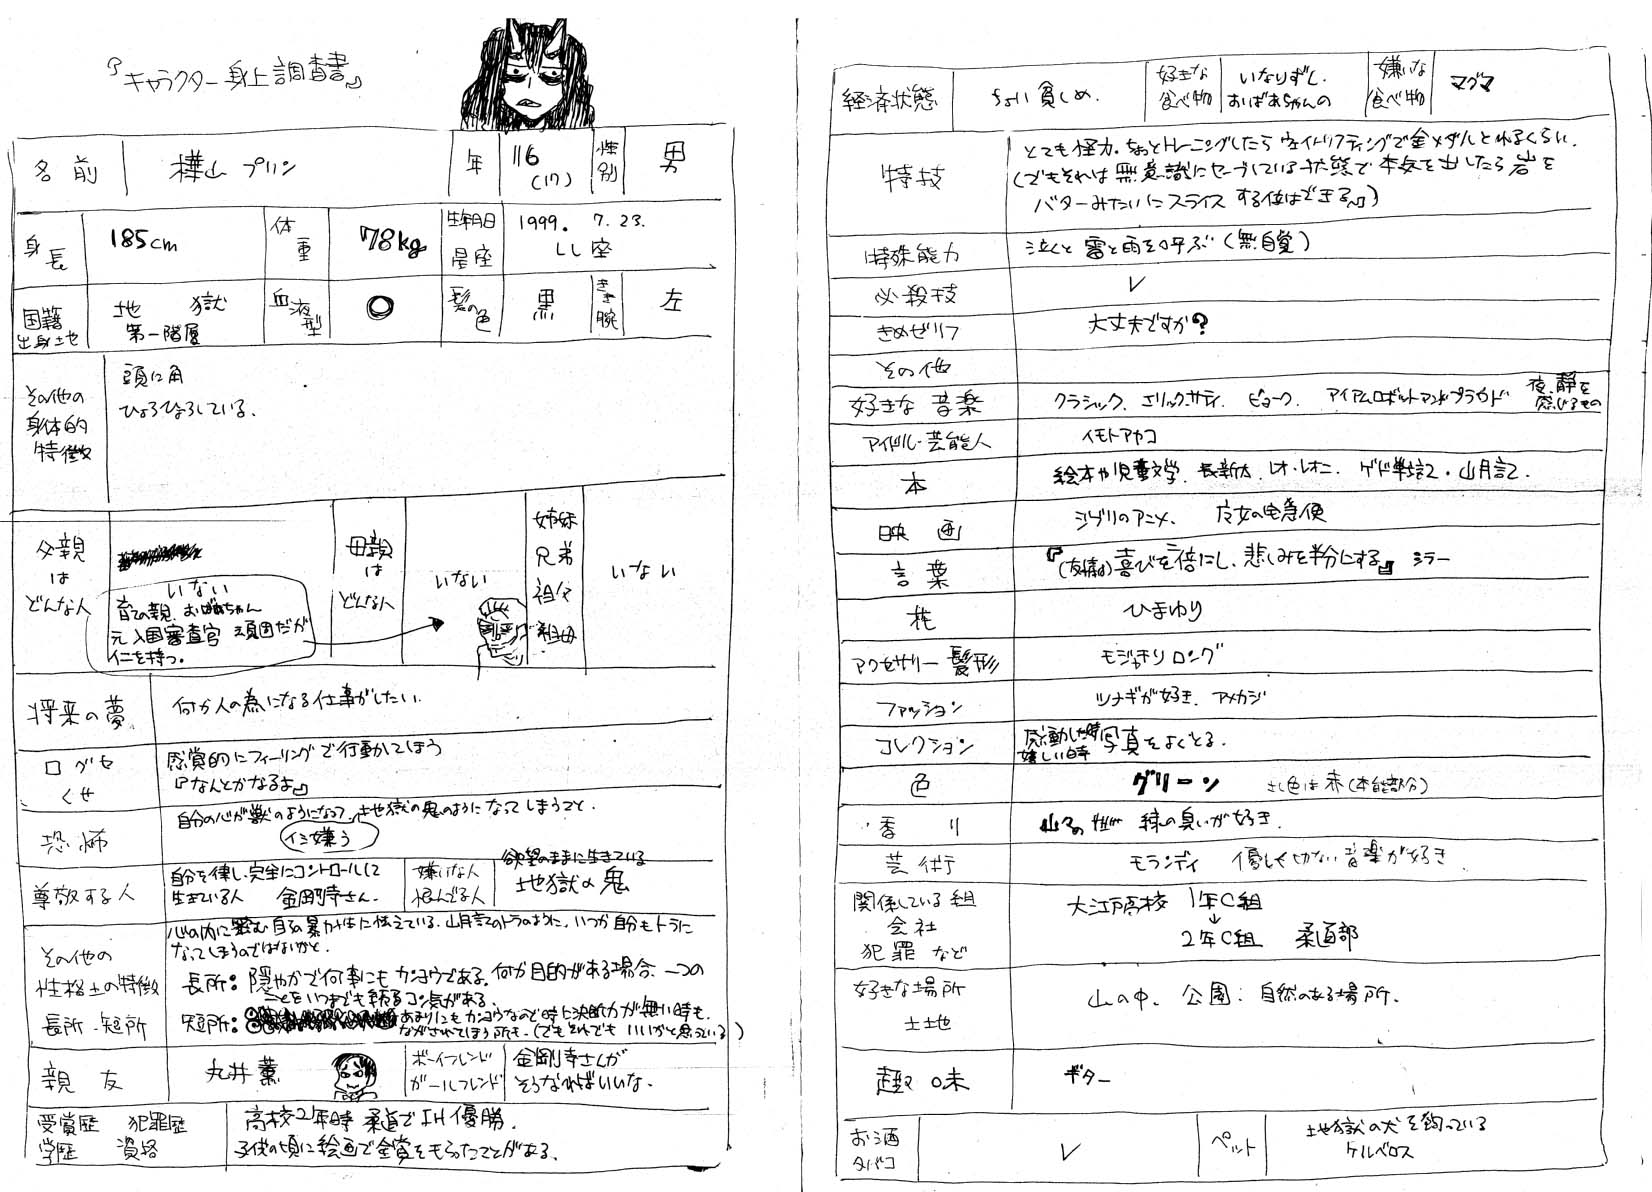 『キャラクター身上調査書』
名前
樺山 プリン
年
116
(17)
性別
男
身長
185cm
体重
78kg
生年月日
星座
1999. 7.23.
しし座
国籍
出身土地
地獄
第一階層
血液型
O
髪の色
黒
きき腕
左
その他の
身体的
特徴
頭に角
ひょろひょろしている.
父親
は
どんな人
いない
育ての親. おばあちゃん
元入国審査官 頑固だが
仁を持つ.
母親
は
どんな人
いない
姉妹
兄弟
祖父
祖母
いない
将来の夢
何か人の為になる仕事がしたい.
口グセ
くせ
感覚的にフィーリングで行動してしまう
『なんとかなるよ』
恐怖
自分の心が獣のようになって、地獄の鬼のようになってしまうこと.
尊敬する人
自分を律し、完全にコントロールして
生きている人 金剛寺さん.
嫌いな人
恨んでる人
欲望のままに生きている
地獄の鬼
その他の
性格上の特徴
長所・短所
心の内に潜む自分の暴力性に怯えている. 山月記のトラのように、いつか自分もトラに
なってしまうのではないかと.
長所: 隠やかで何事にもカンヨウである. 何か目的がある場合、一つの
ことをいつまでも続けるコン気がある.
短所: あまりにもカンヨウなので時に決断力が無い時も.
ながされてしまう所も. (でもそれでもいいかと思っている)
親友
丸井 薫
ボーイフレンド
ガールフレンド
金剛寺さんが
そうなればいいな.
受賞歴 犯罪歴
学歴 資格
高校2年時 柔道でIH優勝.
子供の頃に絵画で金賞をもらったことがある.
経済状態
ちょい貧しめ.
好きな
食べ物
いなりずし.
おばあちゃんの
嫌いな
食べ物
マグマ
特技
とても怪力. ちょっとトレーニングしたらウェイトリフティングで金メダルとれるくらい.
(でもそれは無意識にセーブしている状態で本気を出したら岩を
バターみたいにスライスする位はできる』)
特殊能力
泣くと雷と雨を呼ぶ (無自覚)
必殺技
きめゼリフ
大丈夫ですか?
その他
好きな 音楽
クラシック、エリックサティ、ビョーク、アイアムロボットアンドプラウド 夜、静を
感じるもの
アイドル・芸能人
イモトアヤコ
本
絵本や児童文学. 長新太. レオ・レオニ. ゲド戦記・山月記.
映画
ジブリのアニメ、魔女の宅急便
言葉
『(友情は)喜びを二倍にし、悲しみを半分にする』 シラー
花
ひまわり
アクセサリー 髪形
モジャモジャロング
ファッション
ツナギが好き. アメカジ
コレクション
感動した時 写真をよくとる.
嬉しい時
色
グリーン さし色は赤(本能部分)
香り
緑の臭いが好き.
芸術
モランディ 優しく切ない音楽が好き
関係している組
会社
犯罪など
大江戸高校 1年C組
↓
2年C組 柔道部
好きな場所
土地
山の中、公園: 自然のある場所.
趣味
ギター
お酒
タバコ
ペット
地獄の犬を飼っている
ケルベロス